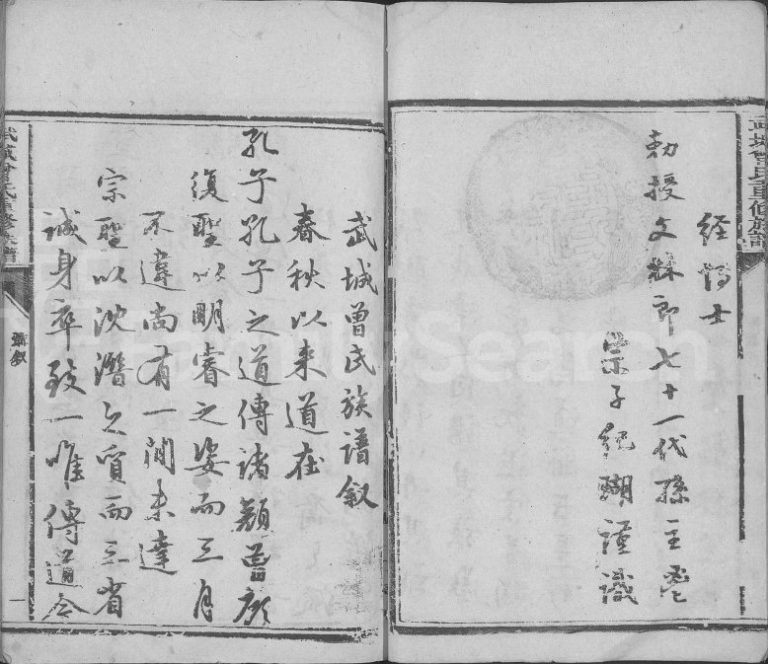 武城曾氏重修族譜
经博士
勅授文林郎七十一代孫主鬯
宗子紀瑚謹識
武城曾氏族譜叙
春秋以来道在
孔子孔子之道傳諸顏曾顧
復聖以明睿之姿而三月
不違尚有一间未達
宗聖以沈潛之質而三省
誠身卒致一唯傳道今
武城曾氏重修族譜
叙
一
FamilySearch